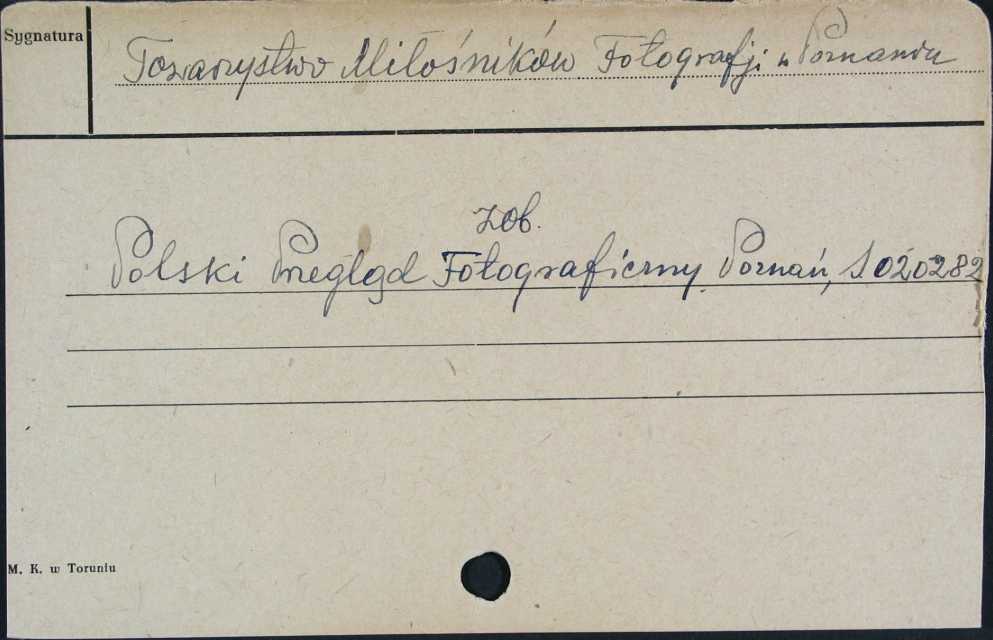 Sygnatura
Towarzystwo Miłośników Fotografji w Poznaniu
zob.
Polski Przegląd Fotograficzny. Poznań, S 020282
M. K. w Toruniu